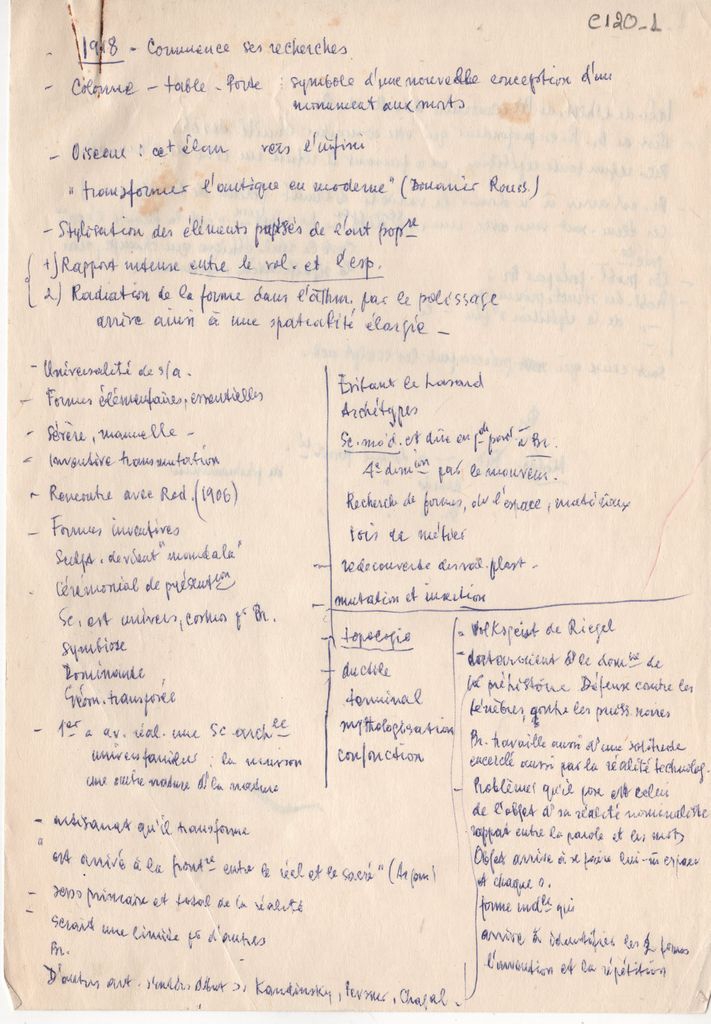 C120-1
- 1918 - Commence ses recherches
- Colonne - table - Porte : symbole d'une nouvelle conception d'un
monument aux morts
- Oiseau : cet élan vers l'infini
"transformer l'antique en moderne" (Douanier Rouss.)
- Stylisation des éléments de l'art popre
1) Rapport intense entre le vol. et l'esp.
2) Radiation de la forme dans l'athm. par le polissage
arrive ainsi à une spatialité élargie -
- Universalité de s/a.
- Formes élémentaires, essentielles
- Sévère, manuelle -
- inventive transmutation
- Rencontre avec Rod. (1906)
- Formes inventives
Sculpt. devient "mandala"
- Cérémonial de présention
Sc. est univers, cosmos pr Br.
Symbiose
Dominante
Géom. transposée
- 1er a av. réal. une Sc archle
univers familier : la maison
une autre nature ds la nature
- artisanat qu'il transforme
"est arrivé à la frontre entre le réel et le sacré" (Argan)
- sens primaire et total de la réalité
- serait une limite pr d'autres
Br.
D'autres art. Kandinsky, Pevsner, Chagal.
Evitant le hasard
Archétypes
Sc. mod. et dire en gde part. à Br.
4e dimion par le mouvem.
Recherche de formes, de l'espace, matériaux
lois de métier
- redécouverte des val. plast.
- mutation et insertion
topologie
- ductile
terminal
mythologisation
conjonction
- Volksgeist de Riegel
- ds le domne de
la préhistoire Défense contre les
ténèbres, contre les puiss. noires
Br. travaille aussi d'une solitude
encerclé aussi par la réalité technolog.
- Problème qu'il pose est celui
de l'objet ds sa réalité nominaliste
rapport entre la parole et les mots
Objet arrive à se faire lui-m espace
et chaque s.
forme indle qui
arrive à identifier les 2 formes
l'invention et la répétition